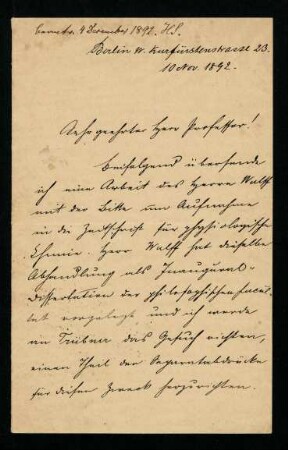 4 Dezember 1892. H.S.
Berlin W. Kurfürstenstrasse 23.
10 Nov. 1892.
Sehr geehrter Herr Professor!
Beifolgend übersende
ich eine Arbeit des Herrn Wulff
mit der Bitte um Aufnahme
in die Zeitschrift für physiologische
Chemie. Herr Wulff hat dieselbe
Abhandlung als Inaugural-
dissertation der philosophischen Facul-
tät vorgelegt und ich werde
an Trübner das Gesuch richten,
einen Theil der Separatabdrücke
für diesen Zweck herzurichten.